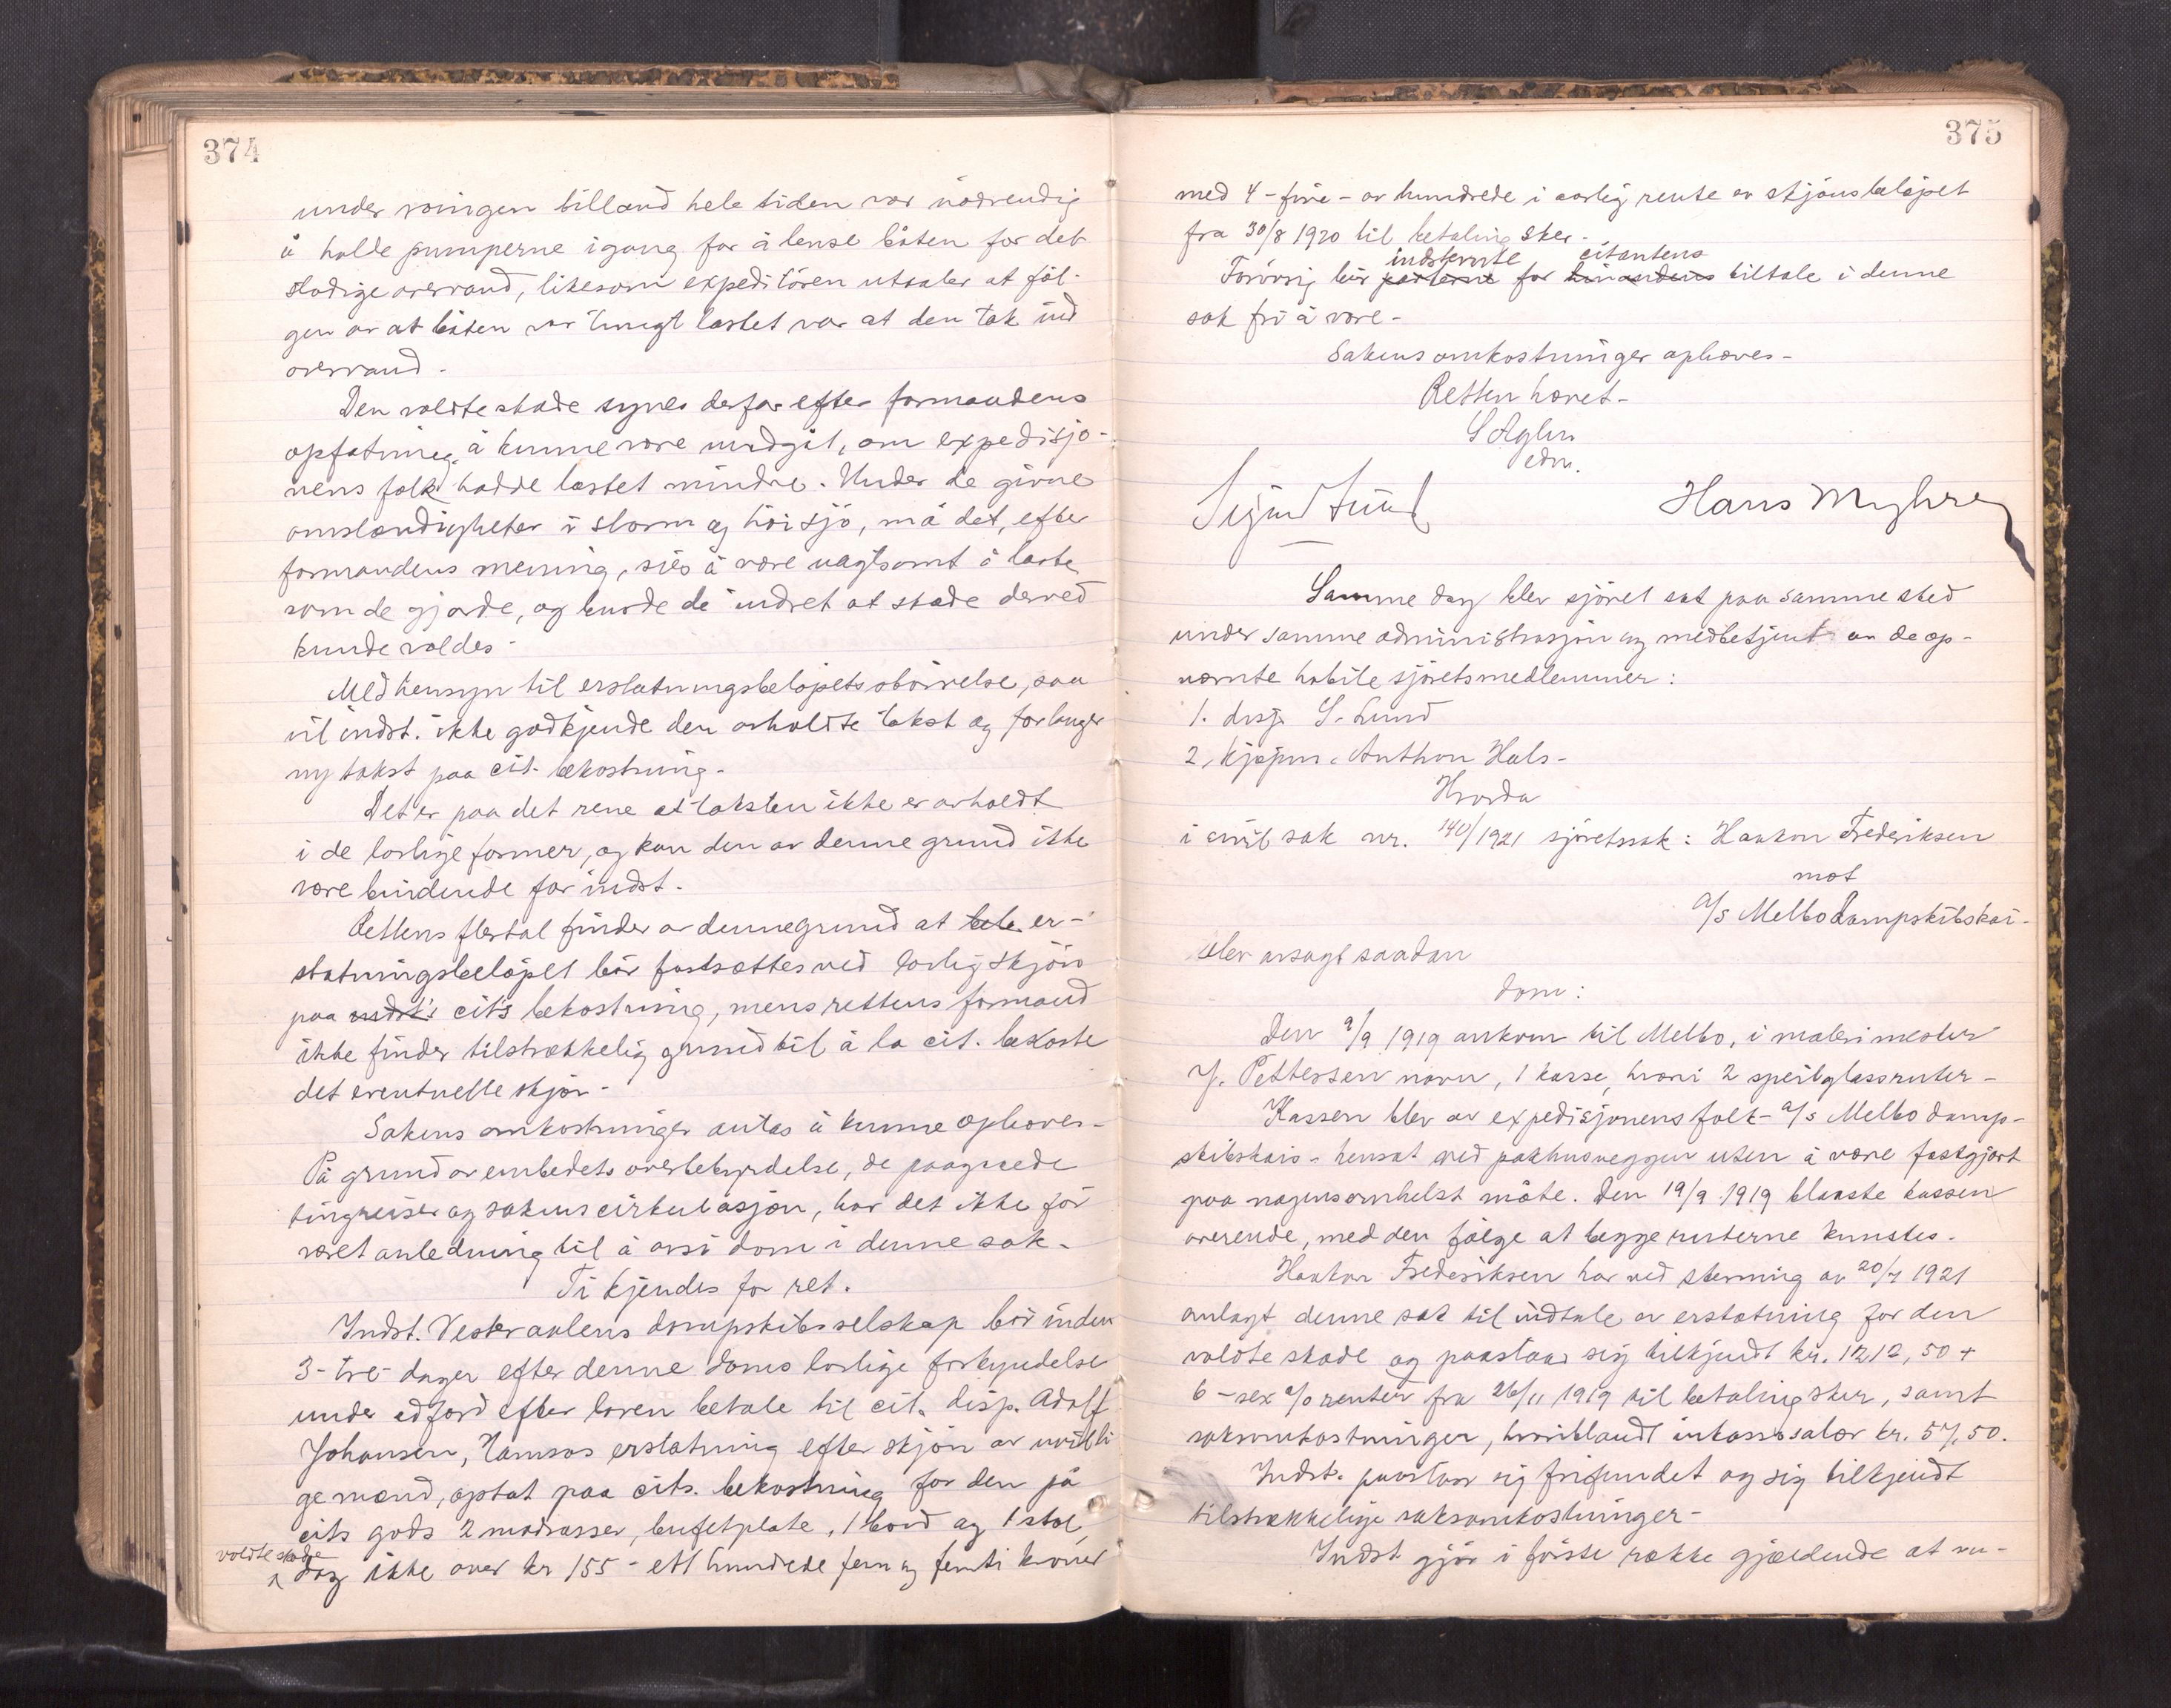 374
under roingen tilland hele tiden var nødvendig
å holde pumperne igang for å lense båten for det
stadige overvand, likesom expeditören uttaler at föl-
gen av at båten var tungt lastet var at den tok ind
overvand.
Den voldte skade synes derfor efter formandens
opfatning å kunne være undgåt, om expedisjo-
nens folk hadde lastet mindre. Under de givne
omstændigheter i storm og höi sjö, må det, efter
formandens mening, sies å være uagtsomt å laste
som de gjorde, og burde de indset at skade derved
kunde voldes-
Med hensyn til erstatningsbelöpets störrelse, saa
vil indst. ikke godkjende den avholdte takst og forlanger
ny takst paa cit. bekostning-
Det er paa det rene at taksten ikke er avholdt
i de lovlige former, og kan den av denne grund ikke
være bindende for indst.
Rettens flertal finder av denne grund at er-
statningsbelöpet bör fastsættes ved lovlig skjön
paa indst's cit's bekostning, mens rettens formand
ikke finder tilstrækkelig grund til å la cit. bekoste
det eventuelle skjön-
Sakens omkostninger antas å kunne ophæves-
På grund av embedets overbebyrdelse, de paagaaende
tingreiser og sakens cirkulasjon, har det ikke för
været anledning til å avsi dom i denne sak-
Ti kjendes for ret.
Indst. Vesteraalens dampskibsselskap bör inden
3-tre- dager efter denne doms lovlige forkyndelse
under adfærd efter loven betale til cit. disp. Adolf
Johansen, Namsos erstatning efter skjön av uvilli-
ge mænd, optat paa cits. bekostning for den på
cits gods 2 madrasser, bufetplate, 1 bord og 1 stol
voldte skade
dog ikke over kr 155- ett hundrede fem og femti kroner
375
med 4 -fire- av hundrede i aarlig rente av skjönsbelöpet
fra 30/8 1920 til betaling sker-
indstevnte citantens
Forövrig bör parterne for hinandens tiltale i denne
sak fri å være-
Sakens omkostninger ophæves-
Retten hævet-
edm.
Sigurd Lund
Hans Myhre
Samme dag blev sjöret sat paa samme sted
under samme administrasjon og medbetjent av de op-
nævnte habile sjöretsmedlemmer:
1. disp. S. Lund
2, kjöpm. Anthon Hals-
Hvorda
i civil sak nr. 140/1921 sjöretssak: Haakon Frederiksen
mot
a/s Melbo Dampskibskai-
blev avsagt saadan
dom:
Den 9/9 1919 ankom til Melbo, i malermester
J. Pettersen navn, 1 kasse, hvori 2 speilglassruter-
Kassen blev av expedisjonens folk- a/s Melbo damp-
skibskais- hensat ved pakhusveggen uten å være fastgjort
paa nogensomhelst måte. Den 19/9 1919 blaaste kassen
overende, med den følge at begge ruterne knustes.
Haakon Frederiksen har ved stevning av 20/7 1921
anlagt denne sak til indtale av erstatning for den
voldte skade og paastaar sig tilkjendt kr. 1212,50 +
6 -sex % renter fra 26/11 1919 til betaling sker, samt
saksomkostninger, hvoriblandt inkassosalær kr. 57,50.
Indst. paastaar sig frifundet og sig tilkjendt
tilstrækkelige saksomkostninger-
Indst. gjör i förste række gjældende at ru-